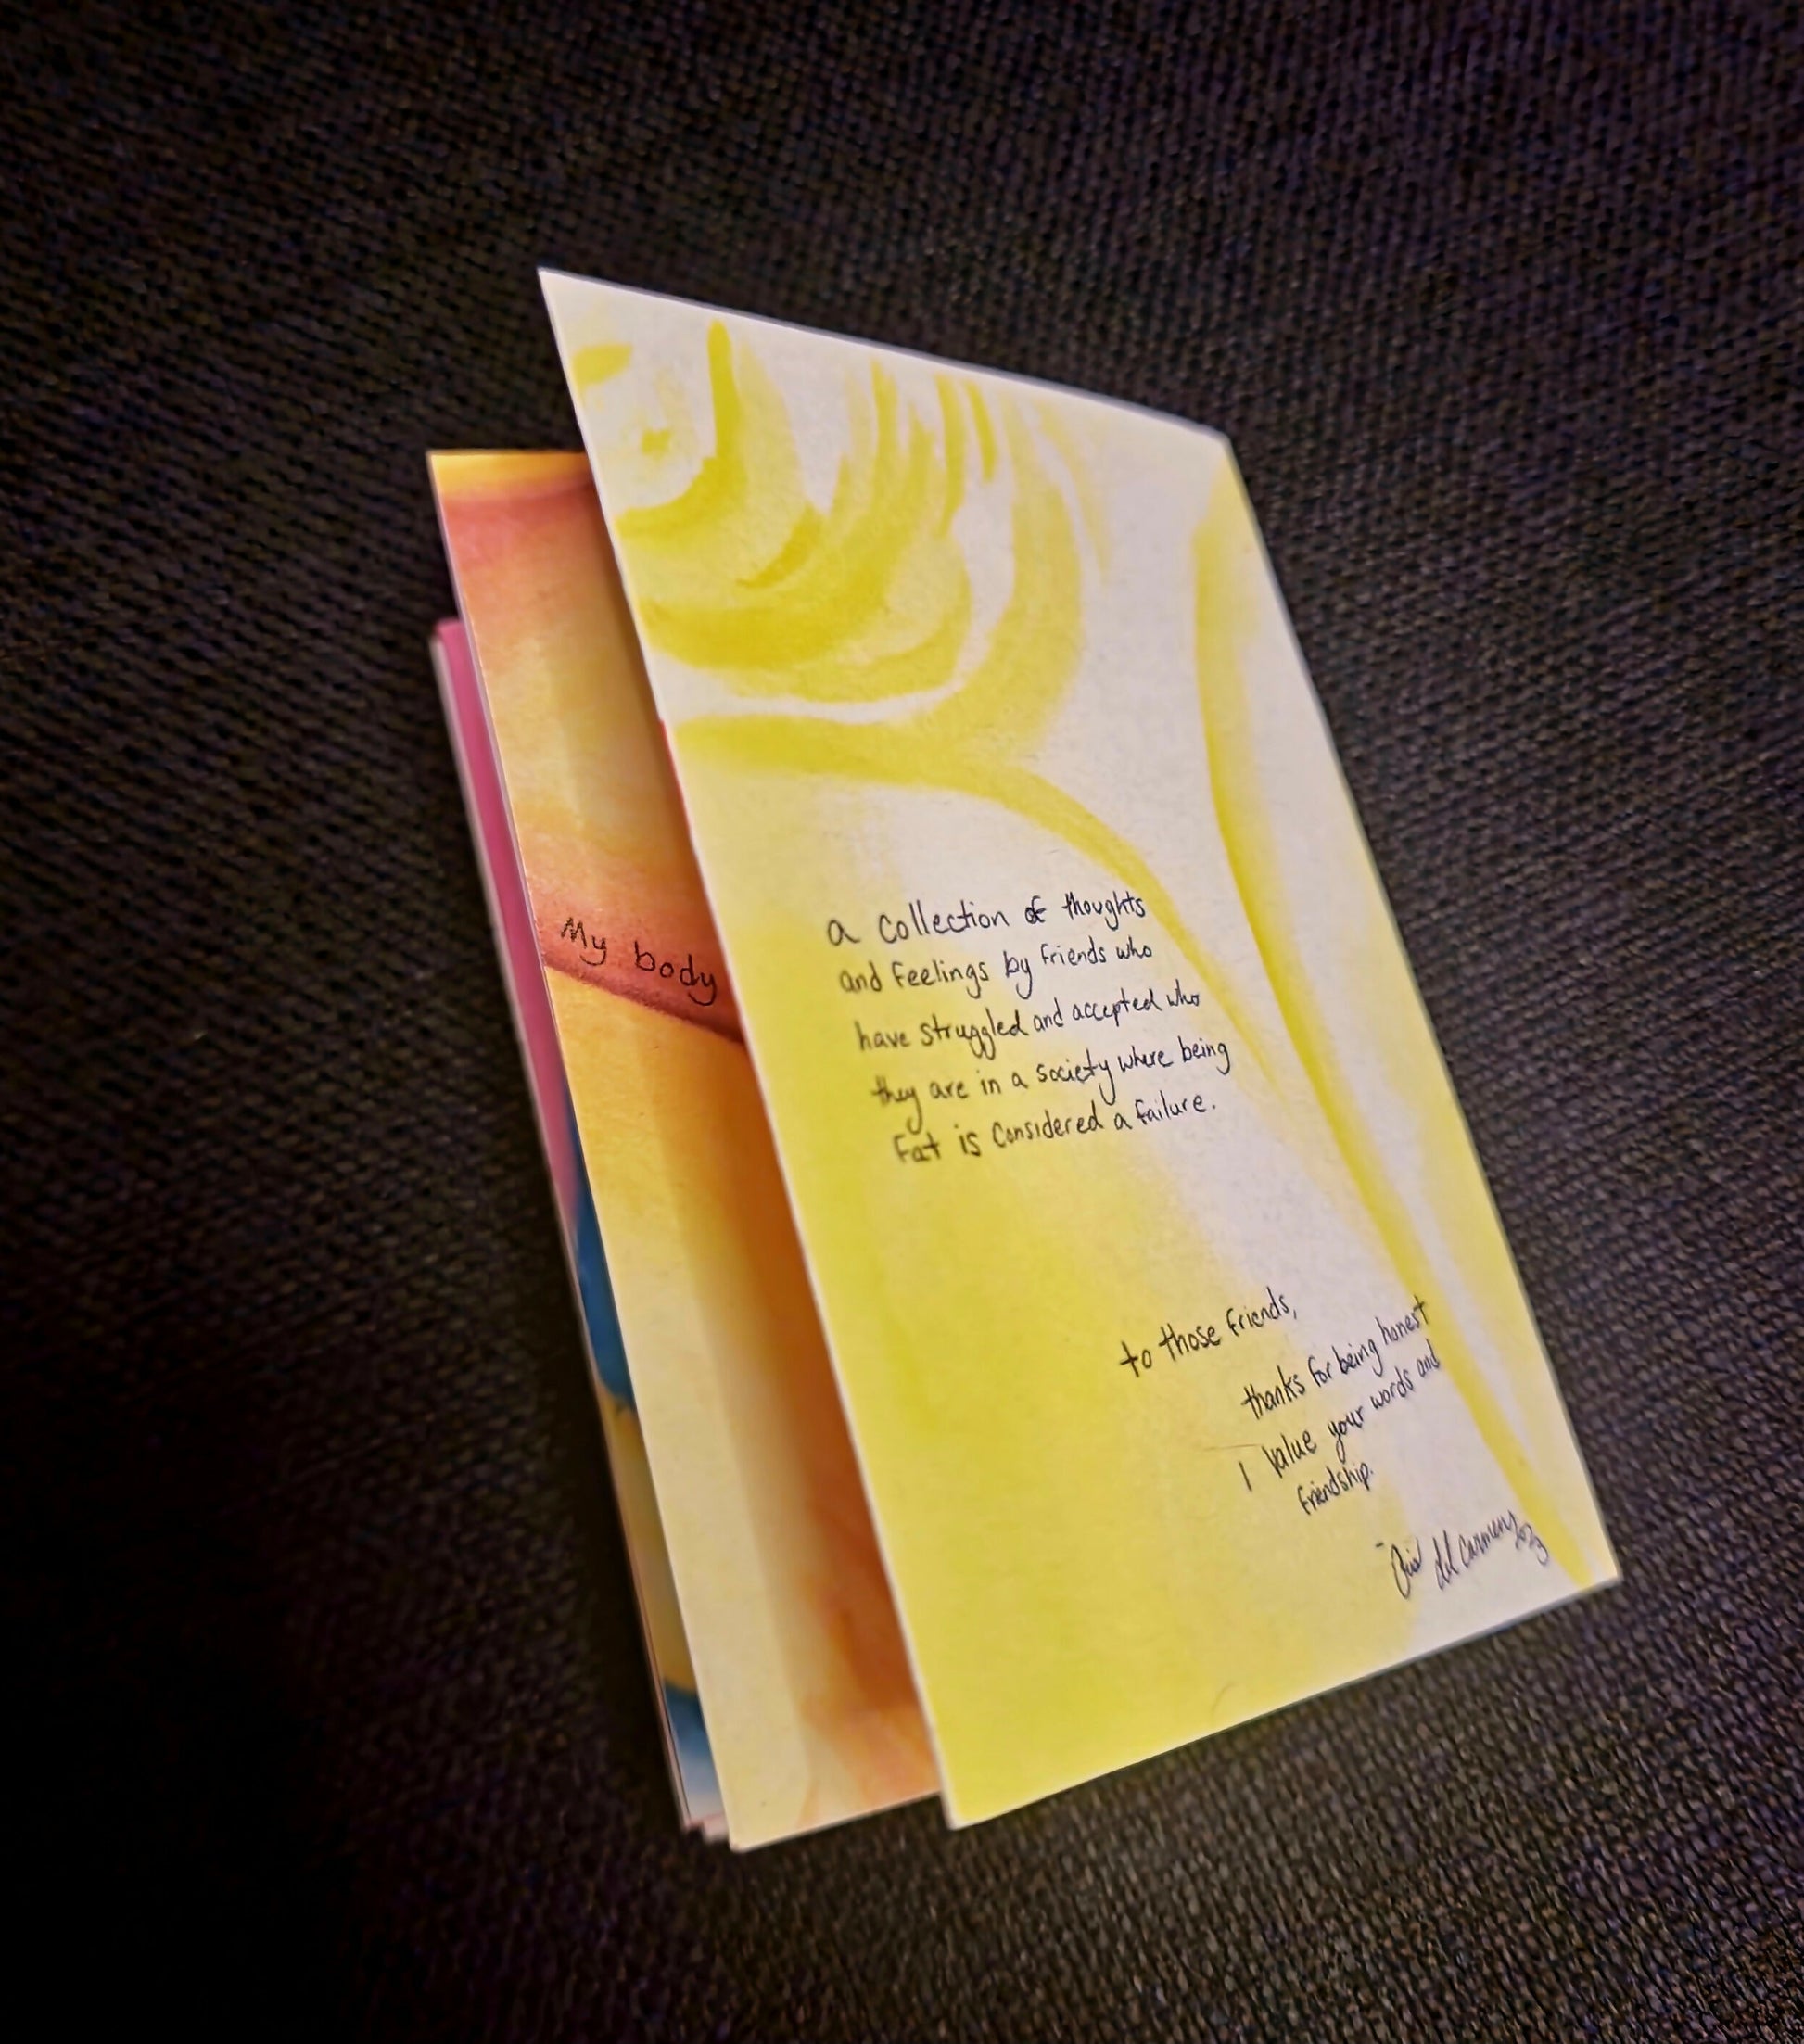 My body
a collection of thoughts
and feelings by friends who
have struggled and accepted who
they are in a society where being
Fat is considered a failure.
to those friends,
thanks for being honest
I value your words and
friendship.
del Carmen 2023